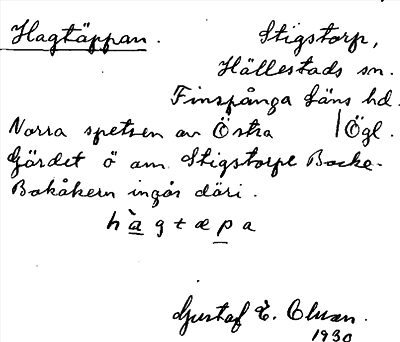 Hagtäppan. Stigstorp,
Hällestads sn.
Finspånga läns hd.
Norra spetsen av Östra /Ögl.
Gärdet ö om Stigstorp Backe-
Bakåkern ingår däri.
hàgtæpa
Gustaf E.
1930